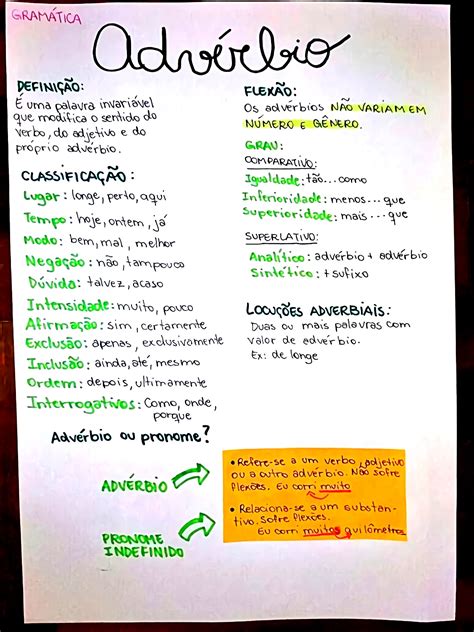 GRAMÁTICA
Advérbio
DEFINIÇÃO:
É uma palavra invariável
que modifica o sentido do
verbo, do adjetivo e do
próprio advérbio.
CLASSIFICAÇÃO:
Lugar: longe, perto, aqui
Tempo: hoje, ontem, já
Modo: bem, mal, melhor
Negação: não, tampouco
Dúvida: talvez, acaso
Intensidade: muito, pouco
Afirmação: sim, certamente
Exclusão: apenas, exclusivamente
Inclusão: ainda, até, mesmo
Ordem: depois, ultimamente
Interrogativos: Como, onde,
porque
FLEXÃO:
Os advérbios NÃO VARIAM EM
NÚMERO E GÊNERO.
GRAU:
COMPARATIVO:
Igualdade: tão...como
Inferioridade: menos...que
Superioridade: mais...que
SUPERLATIVO:
Analítico: advérbio + advérbio
Sintético: + sufixo
LOCUÇÕES ADVERBIAIS:
Duas ou mais palavras com
valor de advérbio.
Ex: de longe
Advérbio ou pronome?
ADVÉRBIO
• Refere-se a um verbo, adjetivo
ou a outro advérbio. Não sofre
flexões. Eu corri muito
PRONOME
INDEFINIDO
• Relaciona-se a um substan-
tivo. Sofre flexões.
Eu corri muitos quilômetros